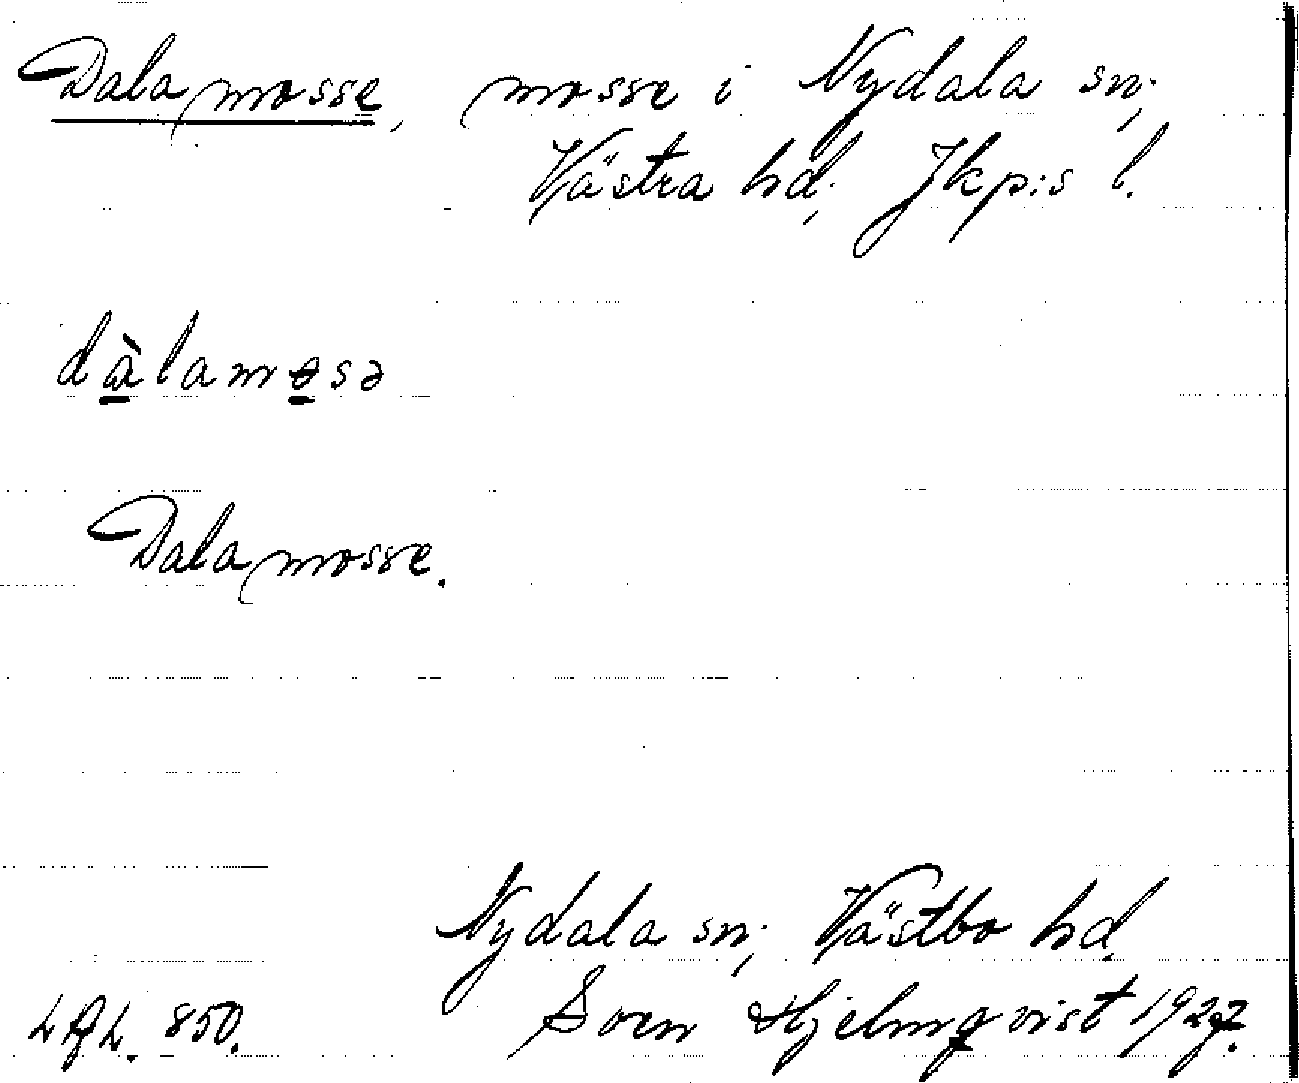 Dala mosse, mosse i Nydala sn;
Västra hd; Jkp:s l.
dàlamosə
Dala mosse.
Nydala sn; Västbo hd
Sven Hjelmqvist 1927.
850.